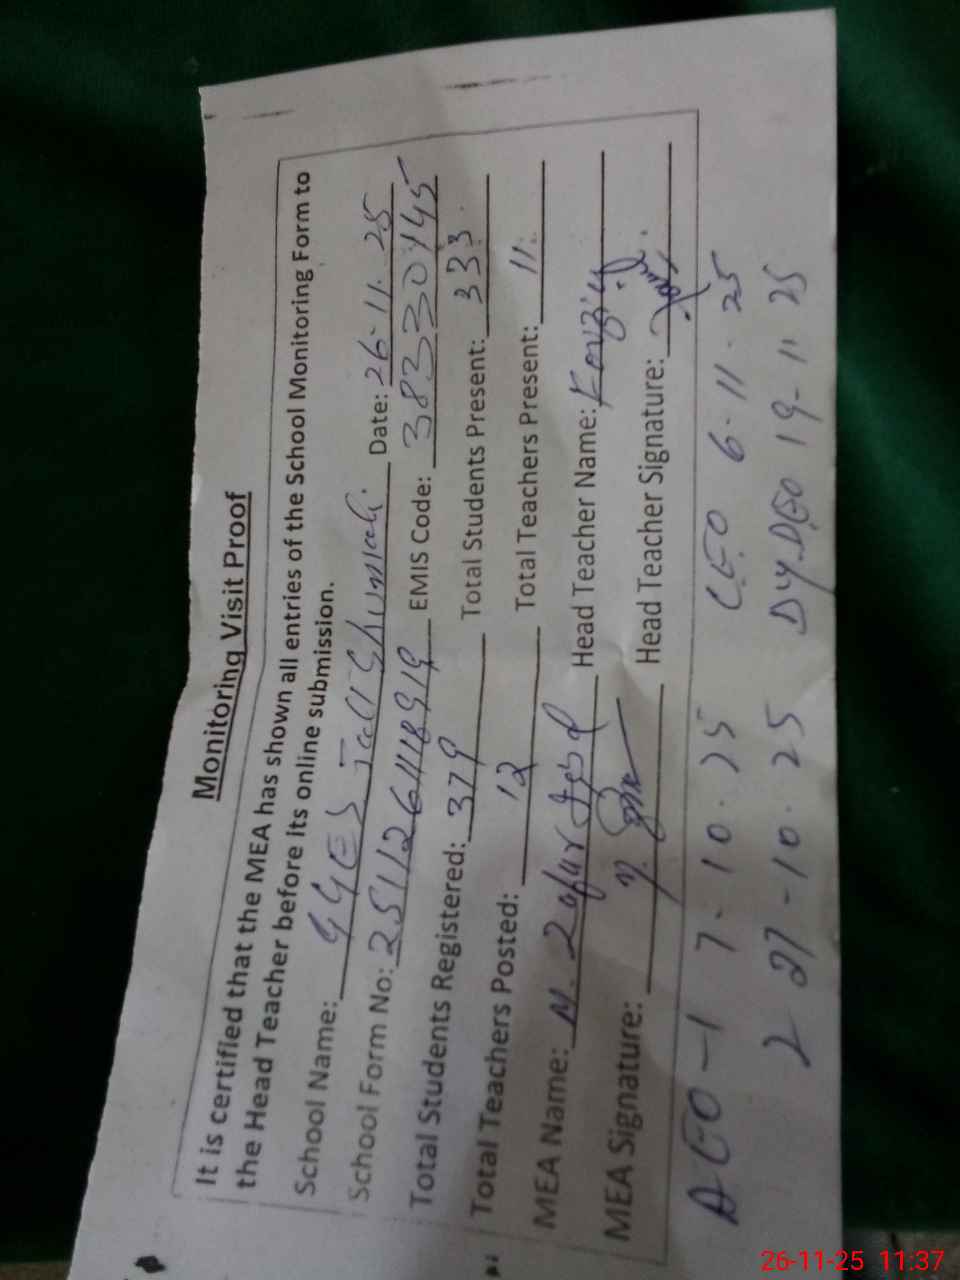 Monitoring Visit Proof
It is certified that the MEA has shown all entries of the School Monitoring Form to
the Head Teacher before its online submission.
School Name: GGES Date: 26-11-25
School Form No: EMIS Code: 38330145
Total Students Registered: 379 Total Students Present: 333
Total Teachers Posted: 12 Total Teachers Present: 11
MEA Name: M. Zafar Iqbal Head Teacher Name:
MEA Signature: Head Teacher Signature:
AEO-1 7-10-25 CEO 6-11-25
2 27-10-25 DY.DEO 19-11-25
26-11-25 11:37